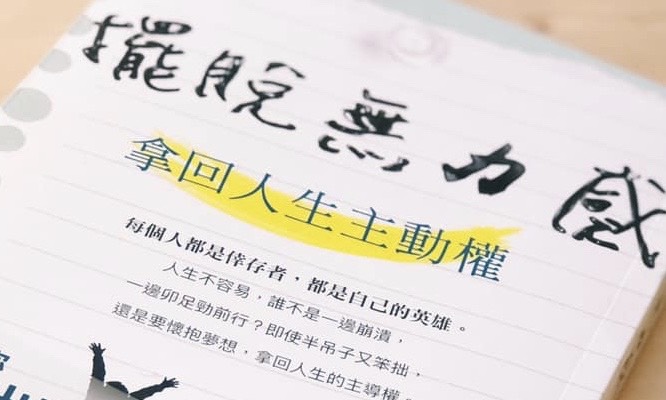 擺脫無力感
拿回人生主動權
每個人都是倖存者，都是自己的英雄。
人生不容易，誰不是一邊崩潰，
一邊卯足勁前行？即使半吊子又笨拙，
還是要懷抱夢想，拿回人生的主導權。